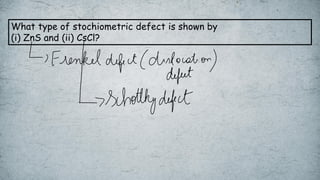 What type of stochiometric defect is shown by
(i) ZnS and (ii) CsCl?
Frenkel defect (dislocation)
defect
Schottky defect